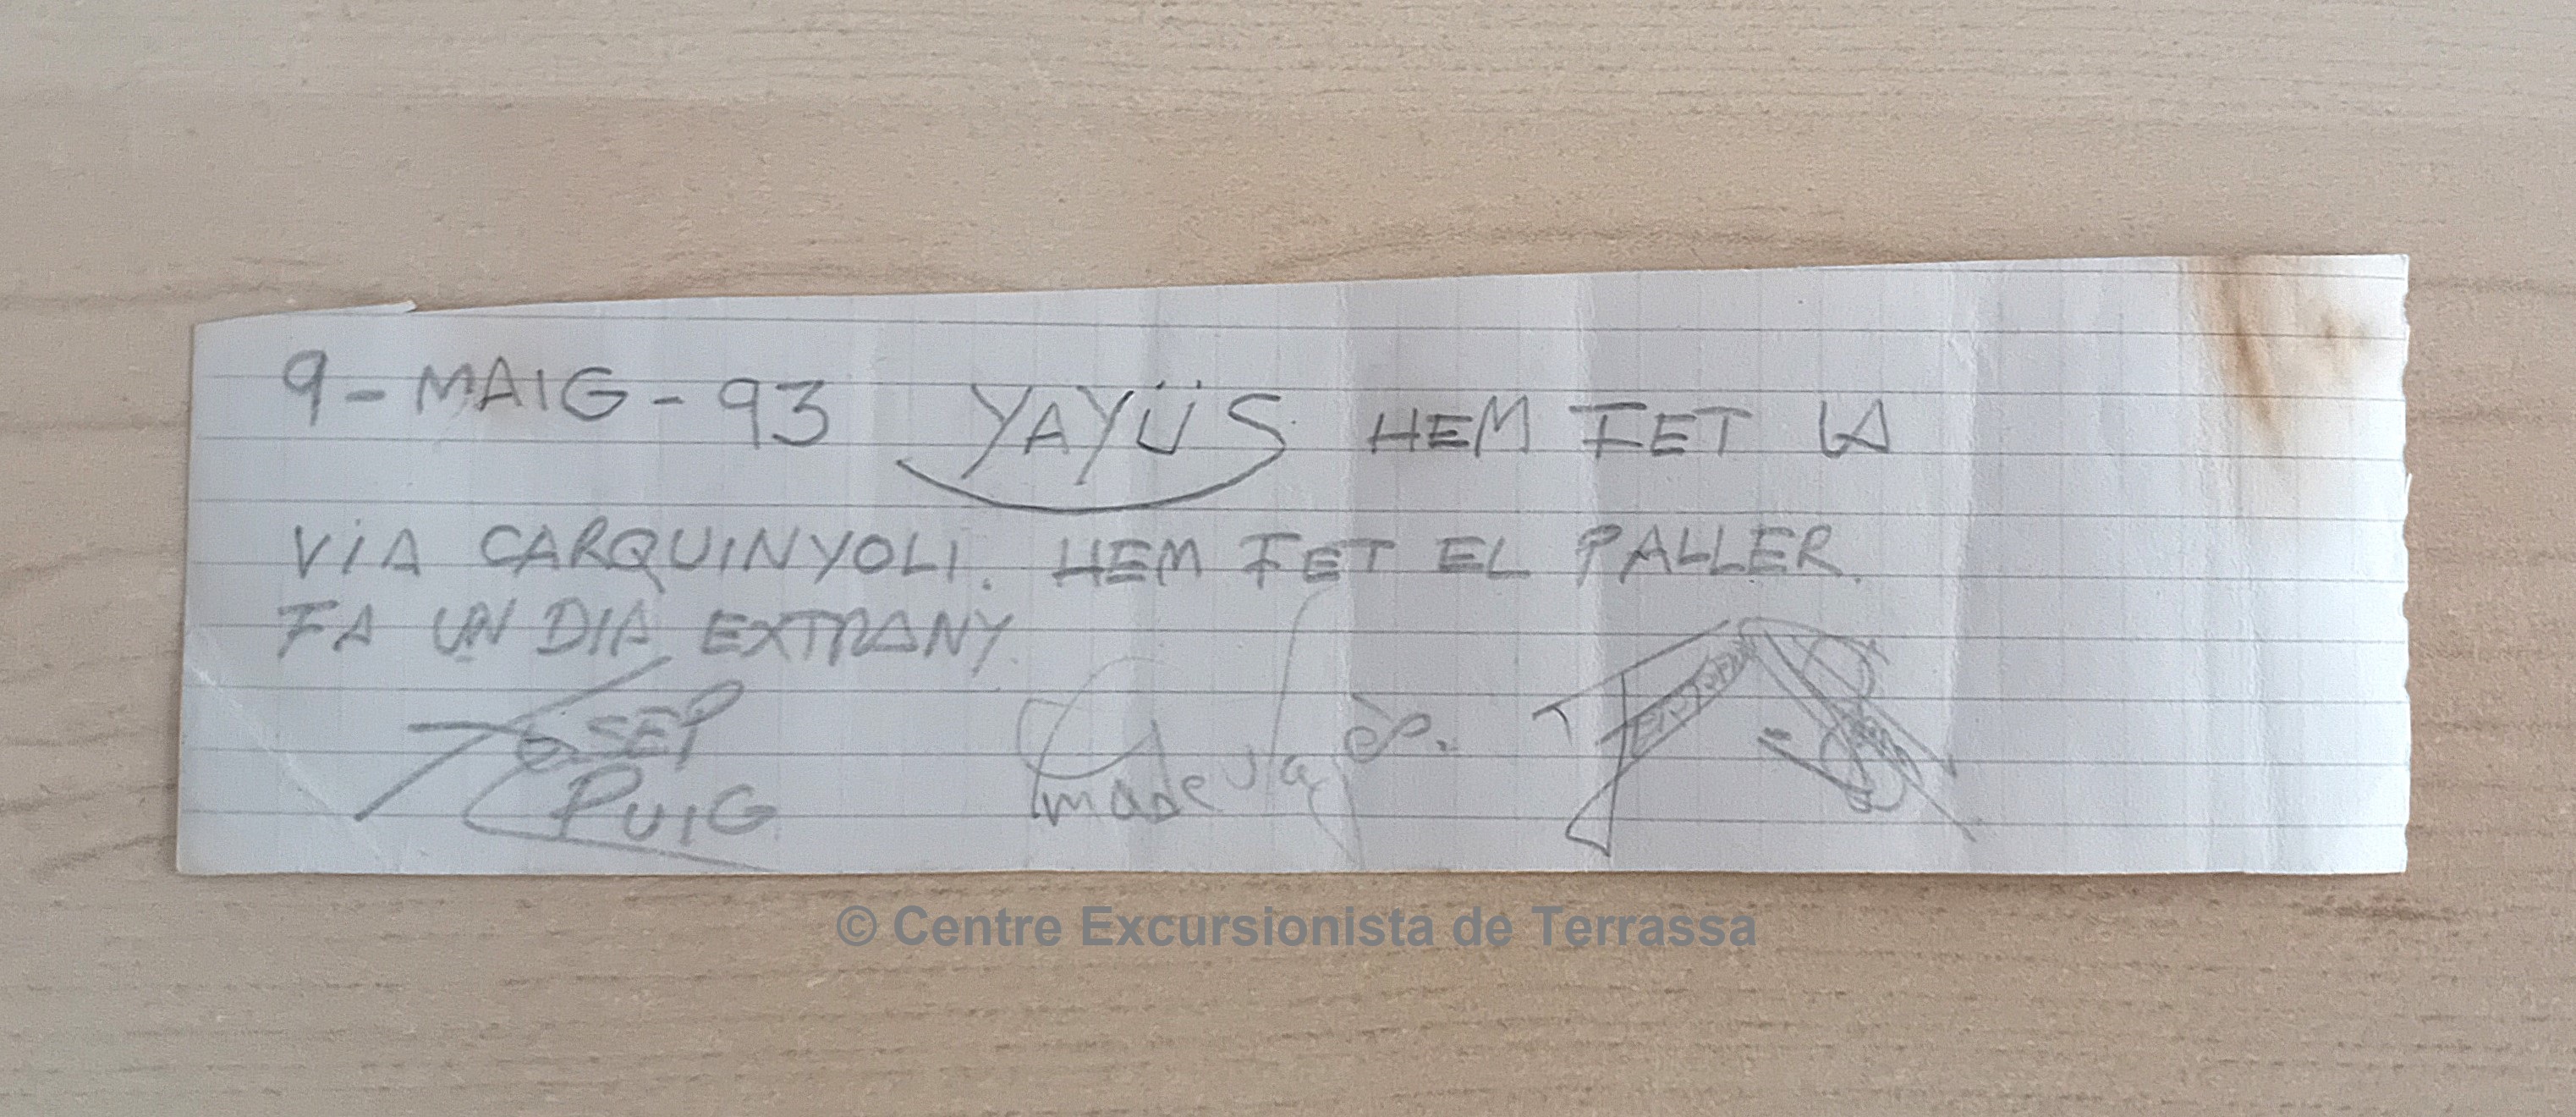 9-MAIG-93 YAYÜS HEM FET LA
ViA CARQUINYOLI. HEM FET EL PALLER.
FA UN DIA EXTRANY.
JOSEP
PUIG
© Centre Excursionista de Terrassa